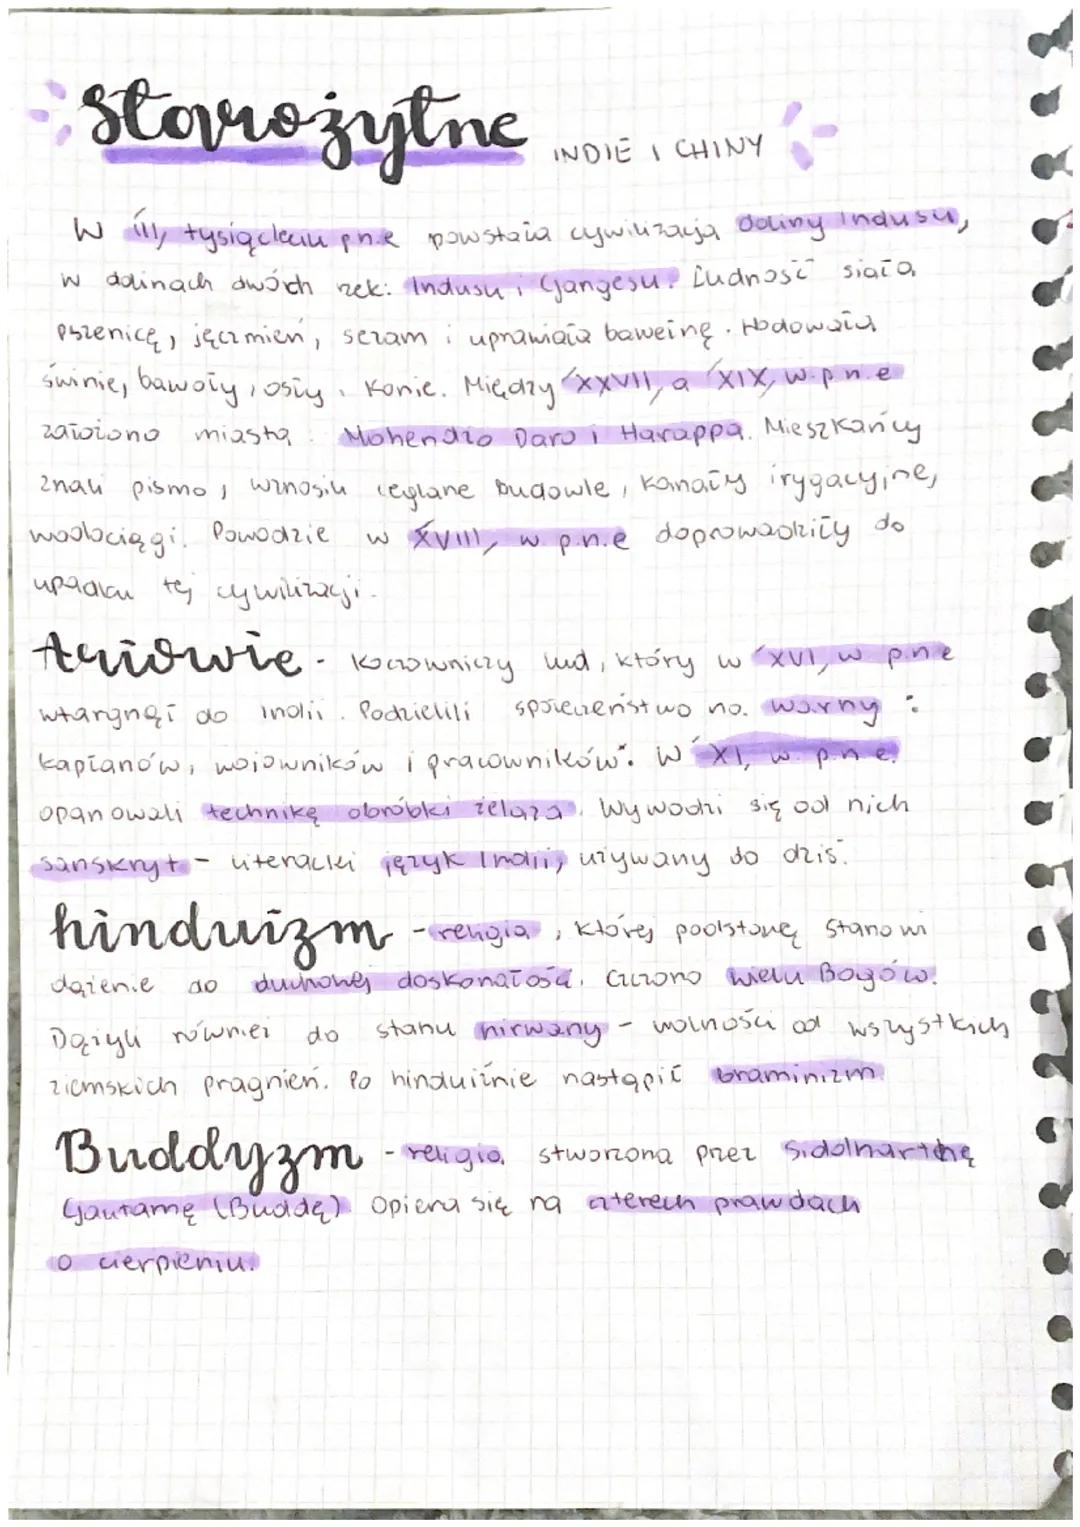 Starożytne INDIE I CHINY
W III tysiącleciu p.n.e powstała cywilizacja doliny Indusu,
w dolinach dwóch rzek: Indusu i Gangesu. Ludność siała
pszenicę, jęczmień, sezam i uprawiała bawełnę. Hodowała
świnie, bawoły, osły i konie. Między XXVII, a XIX w. p.n.e
założono miasta: Mohendżo Daro i Harappa. Mieszkańcy
znali pismo, wznosili ceglane budowle, kanały irygacyjne,
wodociągi. Powodzie w XVIII w. p.n.e doprowadziły do
upadku tej cywilizacji.
Ariowie - koczowniczy lud, który w XVI w p.n.e
wtargnął do Indii. Podzielili społeczeństwo na warny:
kapłanów, wojowników i pracowników. W XI w. p.n.e.
opanowali technikę obróbki żelaza. Wywodzi się od nich
sanskryt - literacki język Indii, używany do dziś.
hinduizm - religia, której podstawę stanowi
dążenie do duchowej doskonałości. Czczono wielu Bogów.
Dążyli również do stanu nirwany - wolności od wszystkich
ziemskich pragnień. Po hinduiźnie nastąpił braminizm.
Buddyzm - religia stworzona przez Siddharthę
Gautamę (Buddę). Opiera się na czterech prawdach
o cierpieniu.